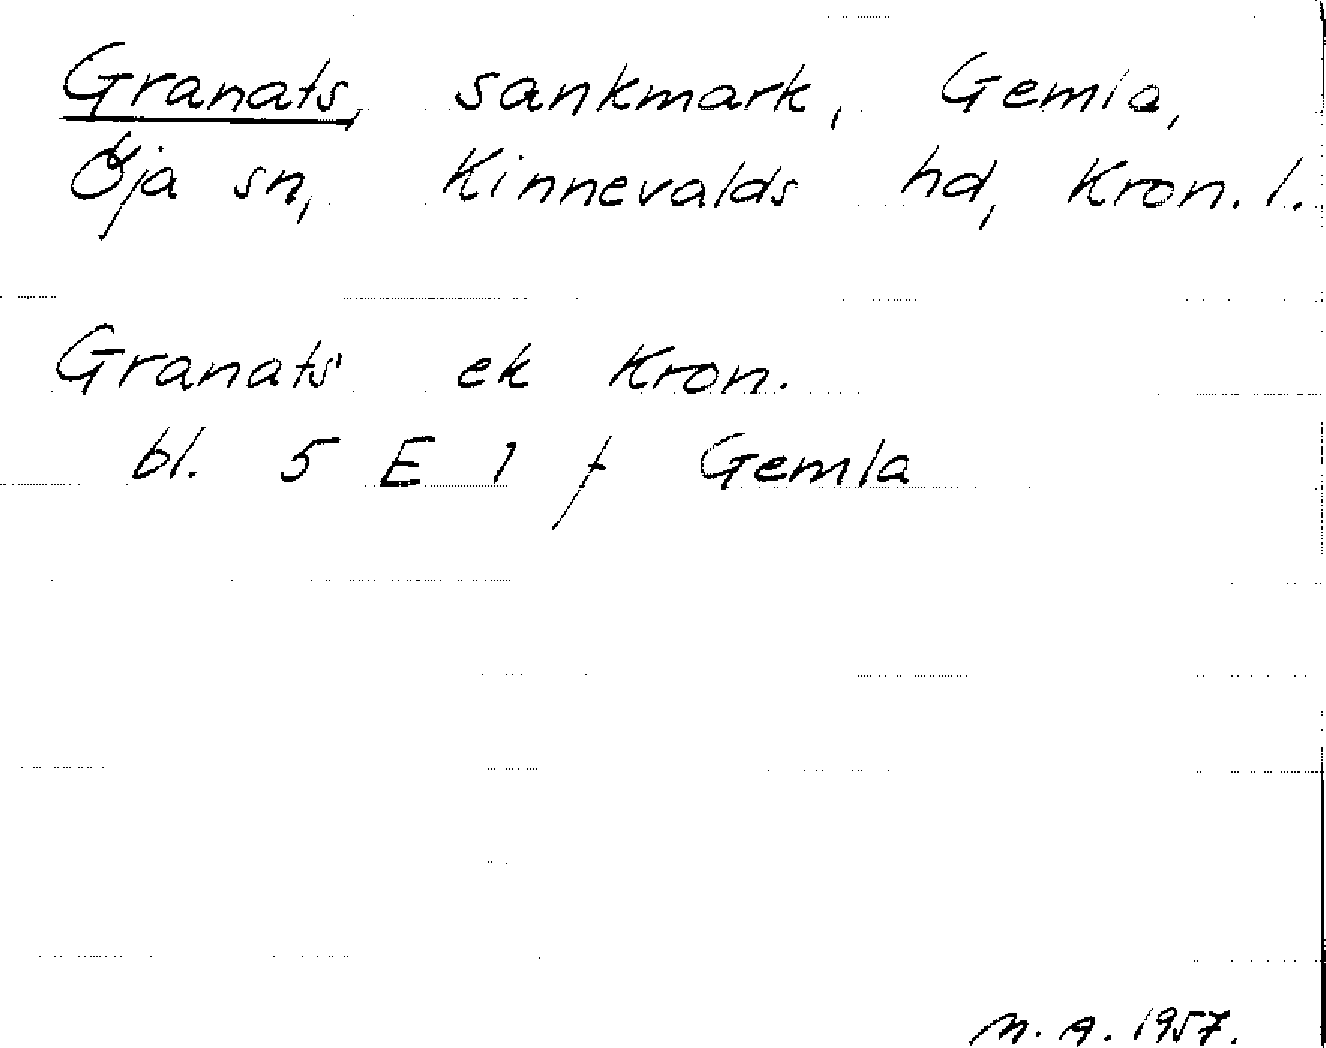 Granats, sankmark, Gemla,
Öja sn, Kinnevalds hd, Kron. l.
Granats ek Kron.
bl. 5 E 1 f Gemla
M. A. 1957.